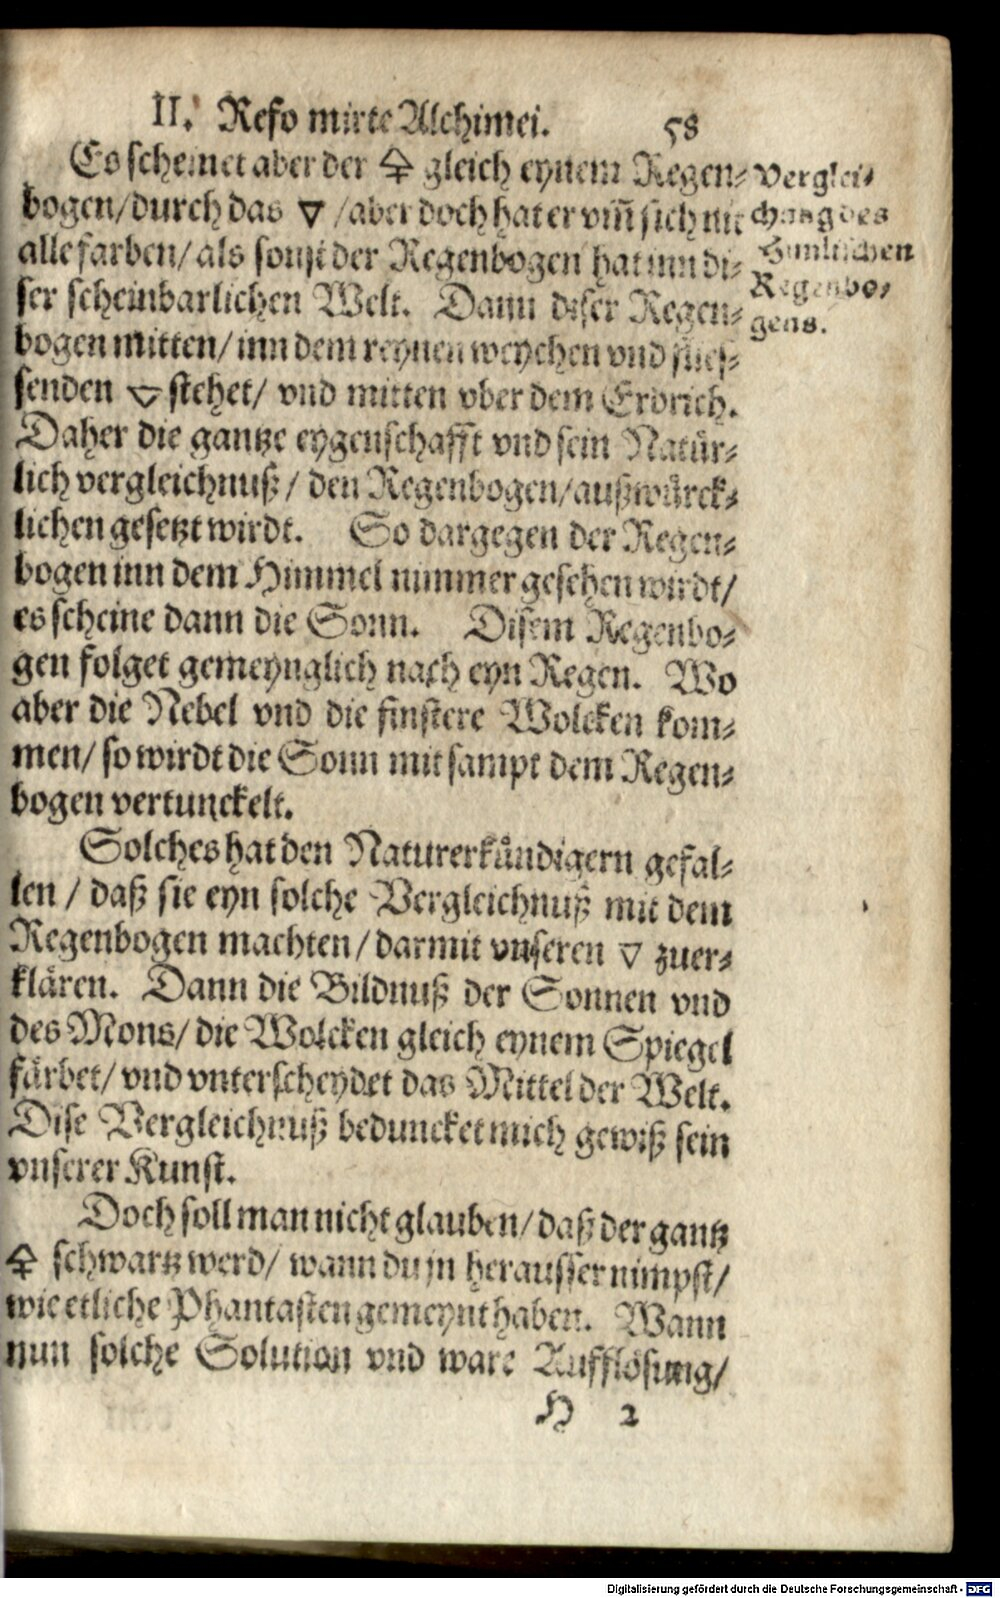 II. Refo mirte Alchimei. 58
Es scheinet aber der 🜍 gleich eynem Regen⸗
bogen/durch das 🜄 /aber doch hat er vm̃ sich nit
alle farben/ als sonst der Regenbogen hat inn di⸗
ser scheinbarlichen Welt. Dann diser Regen⸗
bogen mitten/ inn dem reynen weychen vnd flies⸗
senden 🜄 stehet/ vnd mitten vber dem Erdrich.
Daher die gantze eygenschafft vnd sein Natuͤr⸗
lich vergleichnuß/ den Regenbogen/außwuͤrck⸗
lichen gesetzt wirdt. So dargegen der Regen⸗
bogen inn dem Himmel nimmer gesehen wirdt/
es scheine dann die Sonn. Disem Regenbo⸗
gen folget gemeynglich nach eyn Regen. Wo
aber die Nebel vnd die finstere Wolcken kom⸗
men/ so wirdt die Sonn mit sampt dem Regen⸗
bogen vertunckelt.
Solches hat den Naturerkuͤndigern gefal⸗
len / daß sie eyn solche Vergleichnuß mit dem
Regenbogen machten/ darmit vnseren 🜄 zuer⸗
klaͤren. Dann die Bildnuß der Sonnen vnd
des Mons/ die Wolcken gleich eynem Spiegel
faͤrbet/ vnd vnterscheydet das Mittel der Welt.
Dise Vergleichnuß beduncket mich gewiß sein
vnserer Kunst.
Doch soll man nicht glauben/ daß der gantz
🜍 schwartz werd/ wann du jn herausser nimpst/
wie etliche Phantasten gemeynt haben. Wann
nun solche Solution vnd ware Aufflösung/
H 2
Verglei⸗
chung des
Himlischen
Regenbo⸗
gens.
Digitalisierung gefördert durch die Deutsche Forschungsgemeinschaft - DFG